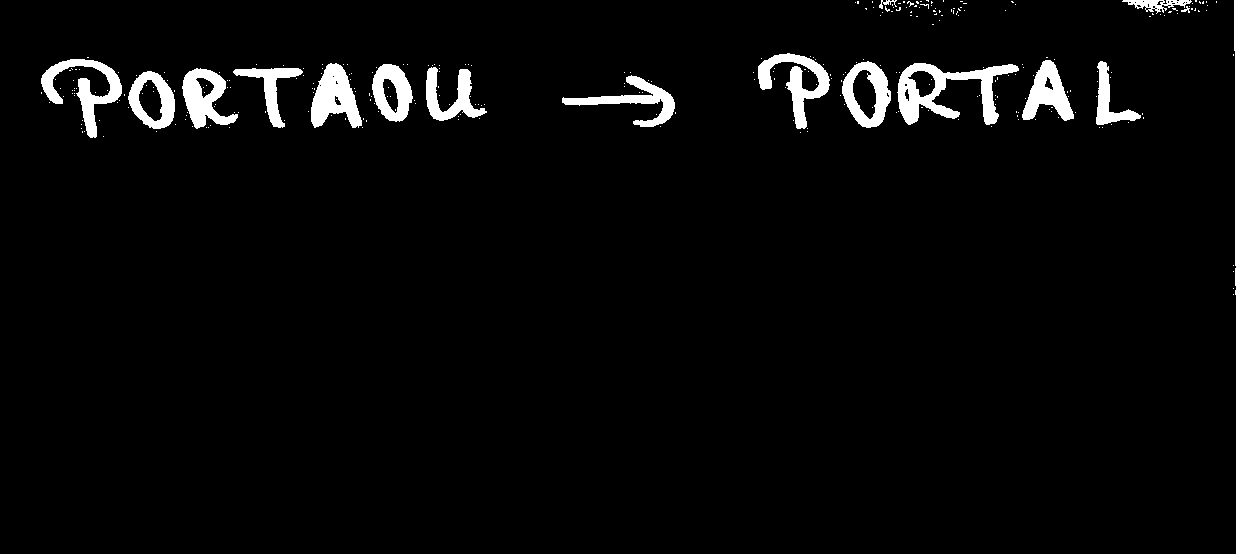 PORTAOU → PORTAL